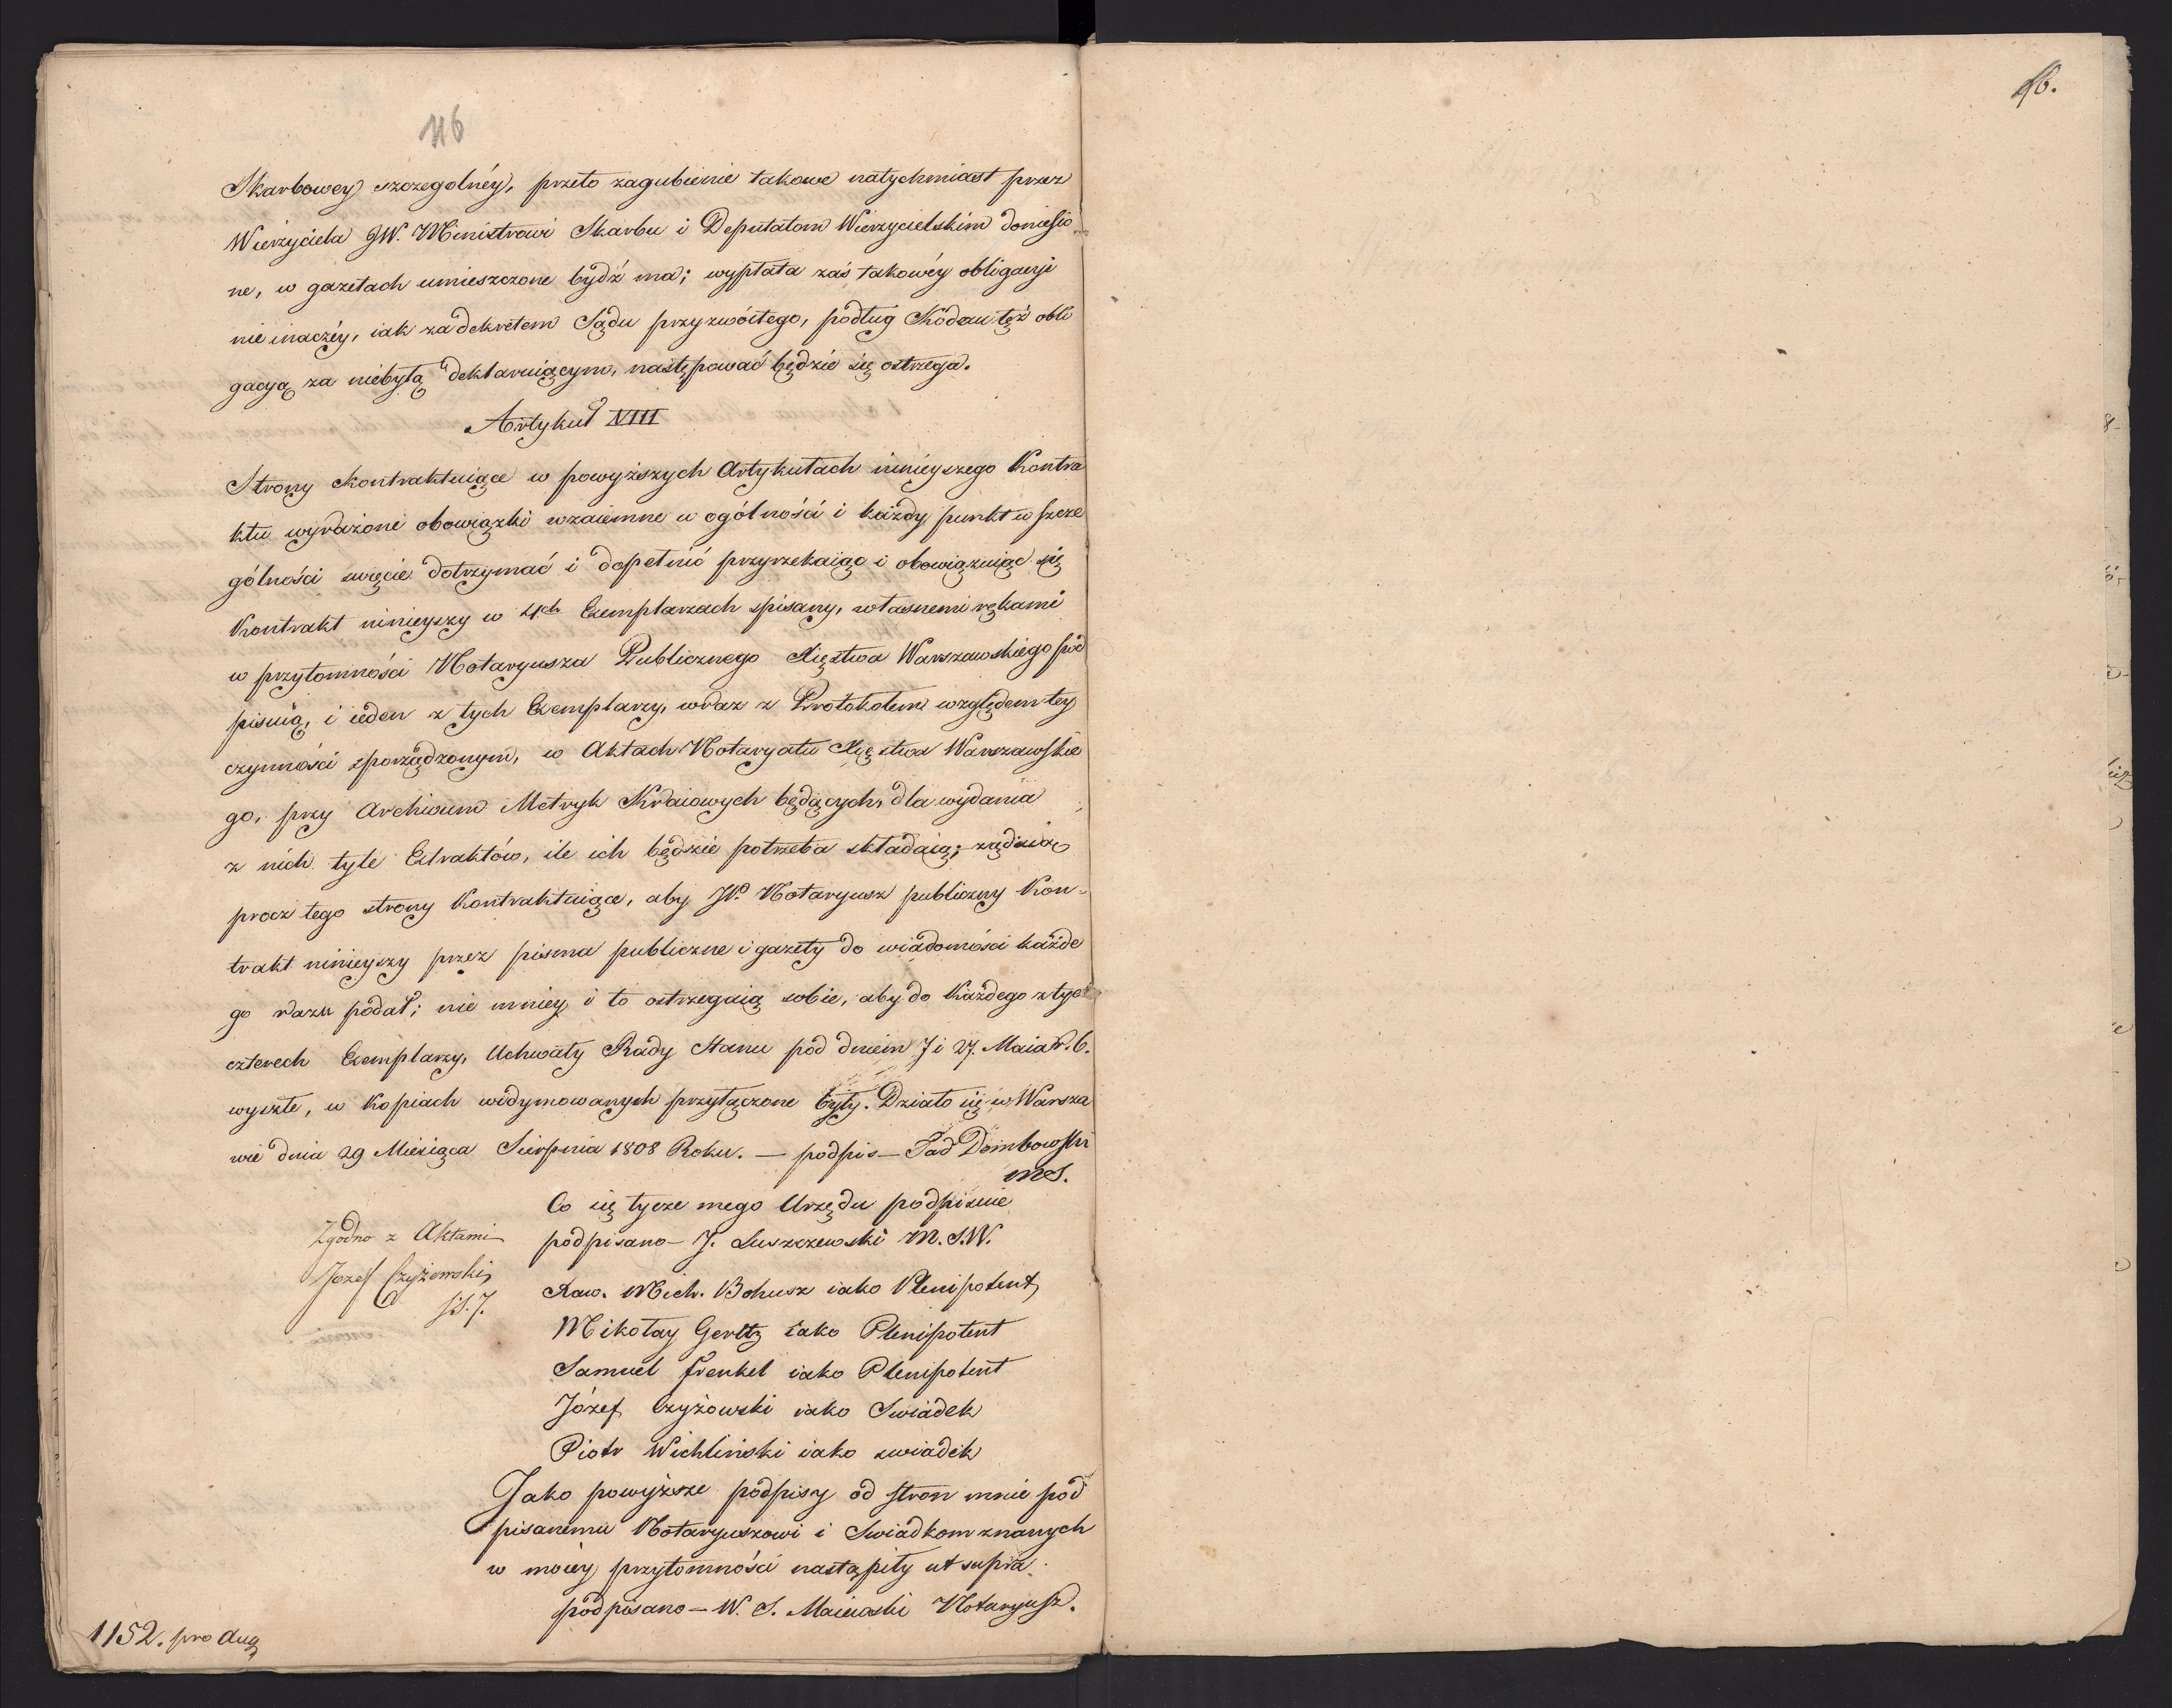 116
Skarbowey szczegolnéy, przeto zagubienie takowe natychmiast przez
Wierzyciela JW. Ministrowi Skarbu i Deputatom Wierzycielskim doniesio
ne, w gazetach umieszczone bydź ma; wypłata zaś takowéy obligacyi
nie inaczéy, iak za dekretem Sądu przyzwoitego, podług Kodexu też obli
gacyą za niebyłą deklaruiącym, następować będzie się ostrzega.
Artykuł VIII
Strony kontraktuiące w powyższych Artykułach ninieyszego Kontra
ktu wyrażone obowiązki wzaiemne w ogólności i każdy punkt w szcze
gólności święcie dotrzymać i dopełnić przyrzekaiąc i obowiązuiąc się
Kontrakt ninieyszy w 4ch Exemplarzach spisany, własnemi rękami
w przytomności Notaryusza Publicznego Xięstwa Warszawskiego pod
pisuią, i ieden z tych Exemplarzy, wraz z Protokołem względem tey
czynności sporządzonym, w Aktach Notaryatu Xięstwa Warszawskie
go, przy Archiwum Metryk Kraiowych będących, dla wydania
z nich tyle Extraktów, ile ich będzie potrzeba składaią; żądaią
procz tego strony Kontraktuiące, aby JP. Notaryusz publiczny Kon-
trakt ninieyszy przez pisma publiczne i gazety do wiadomości każde
go razu podał; nie mniey i to ostrzegaią sobie, aby do Każdego z tych
czterech Exemplarzy, Uchwały Rady Stanu pod dniem 7 i 27. Maia r. b.
wyszłe, w Kopiach widymowanych przyłączone były. Działo się w Warsza
wie dnia 29 Miesiąca Sierpnia 1808 Roku. — podpis — Tad Dembowski
MS.
Co się tycze mego Urzędu podpisuie
podpisano — J. Łuszczewski M. S. W.
Xaw. Mich. Bohusz iako Plenipotent
Mikołay Gerltz iako Plenipotent
Samuel Frenkel iako Plenipotent
Józef Czyżowski iako Swiadek
Piotr Wichliński iako swiadek
Zgodno z Aktami
Jozef Czyżewski
Jako powyższe podpisy od stron mnie pod
pisanemu Notaryuszowi i Swiadkom znanych
w moiey przytomności nastąpiły ut supra.
podpisano — W. S. Maiewski Notaryusz.
1152. pro Aug